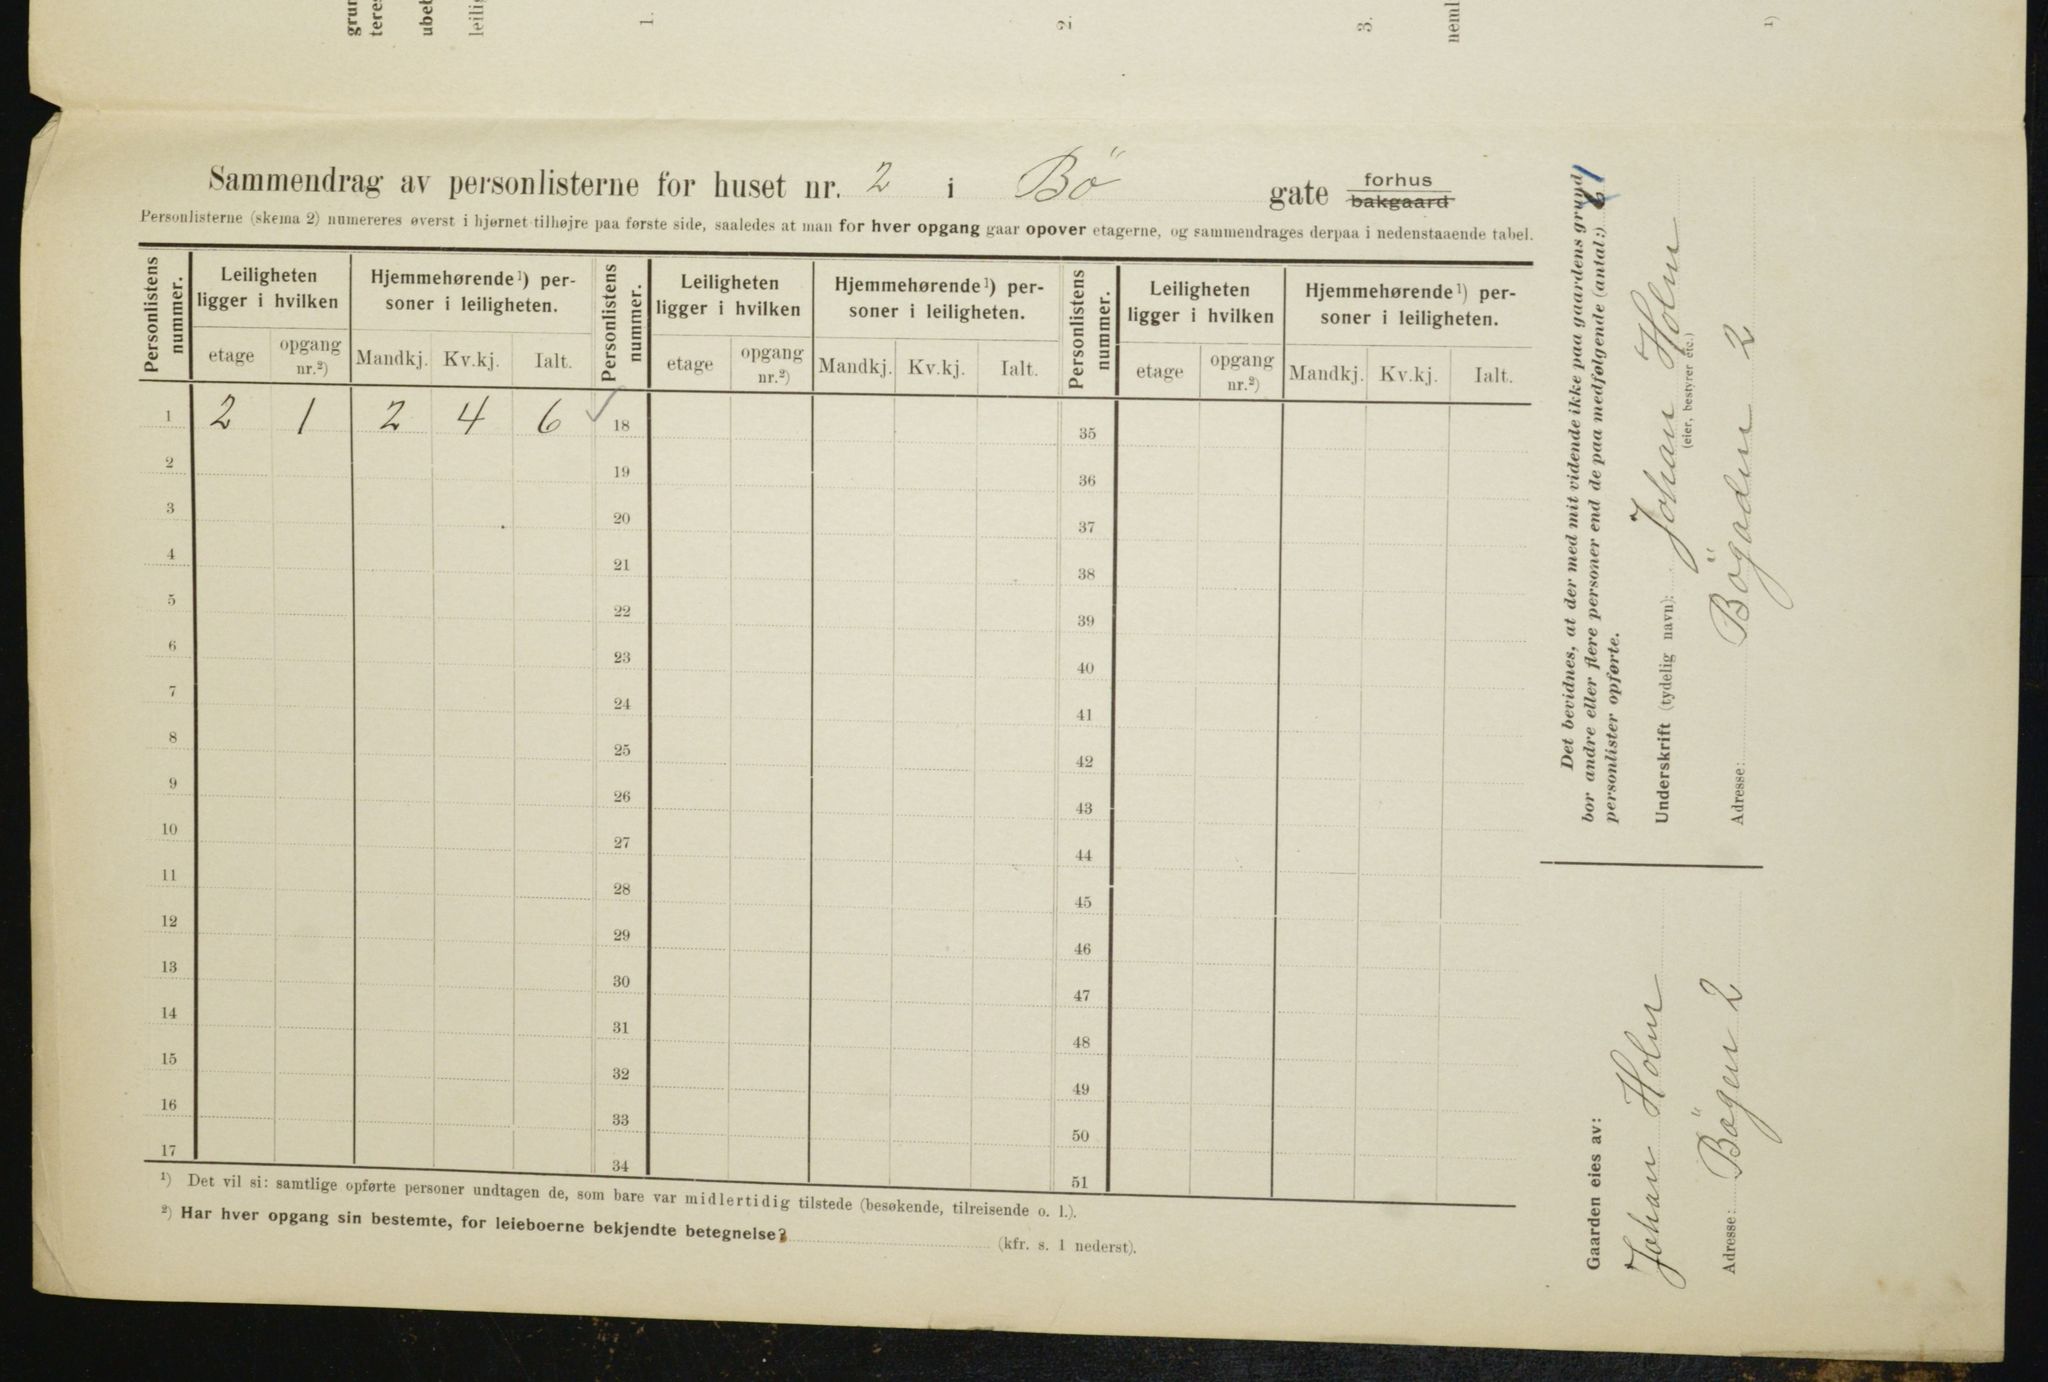 grun
teres
ubeb
leilig
1.
2.
3.
neml
1)
Sammendrag av personlisterne for huset nr. 2 i Bö gate forhus bakgaard
Personlisterne (skema 2) numereres øverst i hjørnet tilhøjre paa første side, saaledes at man for hver opgang gaar opover etagerne, og sammendrages derpaa i nedenstaaende tabel.
Personlistens nummer. Leiligheten ligger i hvilken Hjemmehørende¹) personer i leiligheten. Personlistens nummer. Leiligheten ligger i hvilken Hjemmehørende¹) personer i leiligheten. Personlistens nummer. Leiligheten ligger i hvilken Hjemmehørende¹) personer i leiligheten.
etage opgang nr.²) Mandkj. Kv.kj. Ialt. etage opgang nr.²) Mandkj. Kv.kj. Ialt. etage opgang nr.²) Mandkj. Kv.kj. Ialt.
1 2 1 2 4 6 18 35
2 19 36
3 20 37
4 21 38
5 22 39
6 23 40
7 24 41
8 25 42
9 26 43
10 27 44
11 28 45
12 29 46
13 30 47
14 31 48
15 32 49
16 33 50
17 34 51
¹) Det vil si: samtlige opførte personer undtagen de, som bare var midlertidig tilstede (besøkende, tilreisende o. l.).
²) Har hver opgang sin bestemte, for leieboerne bekjendte betegnelse? (kfr. s. 1 nederst).
Det bevidnes, at der med mit vidende ikke paa gaardens grund
bor andre eller flere personer end de paa medfølgende (antal:) 1
personlister opførte.
Underskrift (tydelig navn): Johan Holm
(eier, bestyrer etc.)
Adresse: Bögaden 2
Gaarden eies av:
Johan Holm
Adresse: Bögen 2